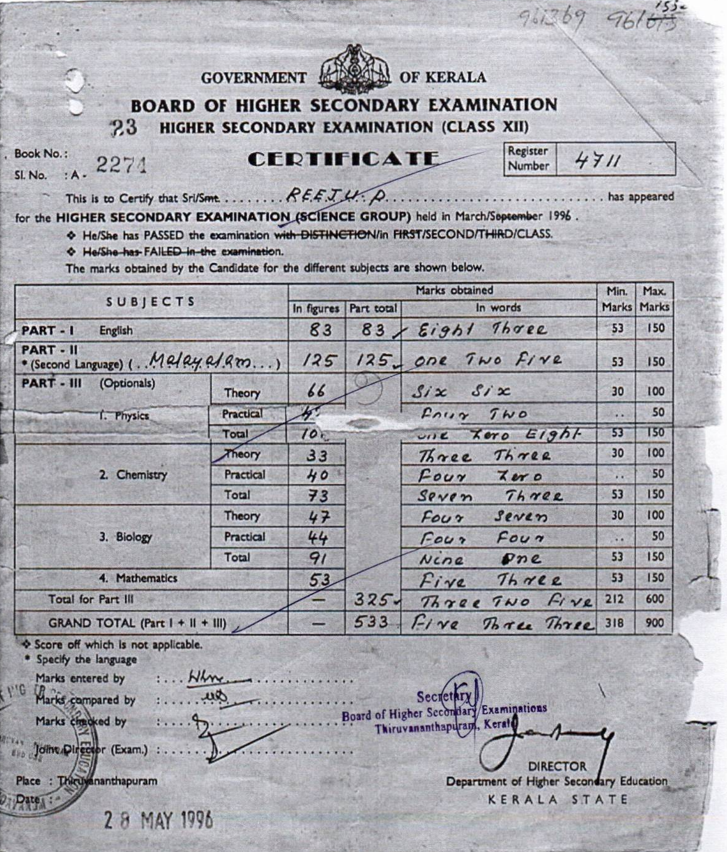 961369
GOVERNMENT OF KERALA
BOARD OF HIGHER SECONDARY EXAMINATION
23 HIGHER SECONDARY EXAMINATION (CLASS XII)
Book No. :
CERTIFICATE
Register Number 4711
Sl. No. : A - 2274
This is to Certify that Sri/Smt. REEJU. P has appeared
for the HIGHER SECONDARY EXAMINATION (SCIENCE GROUP) held in March/September 1996 .
❖ He/She has PASSED the examination with DISTINCTION/in FIRST/SECOND/THIRD/CLASS.
❖ He/She has FAILED in the examination.
The marks obtained by the Candidate for the different subjects are shown below.
SUBJECTS Marks obtained Min. Marks Max. Marks
In figures Part total In words
PART - I English 83 83 Eight Three 53 150
PART - II
* (Second Language) (..Malayalam...) 125 125 One Two Five 53 150
PART - III (Optionals)
1. Physics Theory 66 Six Six 30 100
Practical Four Two .. 50
Total One Zero Eight 53 150
2. Chemistry Theory 33 Three Three 30 100
Practical 40 Four Zero .. 50
Total 73 Seven Three 53 150
3. Biology Theory 47 Four Seven 30 100
Practical 44 Four Four .. 50
Total 91 Nine One 53 150
4. Mathematics 53 Five Three 53 150
Total for Part III — 325 Three Two Five 212 600
GRAND TOTAL (Part I + II + III) — 533 Five Three Three 318 900
❖ Score off which is not applicable.
* Specify the language
Marks entered by :
Marks compared by :
Marks checked by :
Joint Director (Exam.) :
Secretary
Board of Higher Secondary Examinations
Thiruvananthapuram, Kerala
Place : Thiruvananthapuram
Date :
28 MAY 1996
DIRECTOR
Department of Higher Secondary Education
KERALA STATE